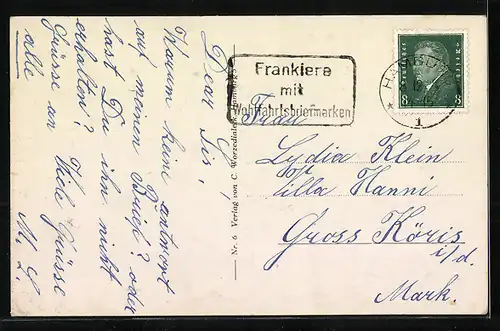 Dear Sis,
Warum kein antwort
auf meinen Brief? oder
hast Du ihn nicht
erhalten? Viele Grüsse
Grüsse an
alle M. L.
Nr. 6 Verlag von C. Worzedialeck, Hamburg
Frankiere
mit
Wohlfahrtsbriefmarken
HAMBURG
1
Deutsches Reich
8 8
Frau
Lydia Klein
Villa Hanni
Gross Köris
i/d.
Mark.